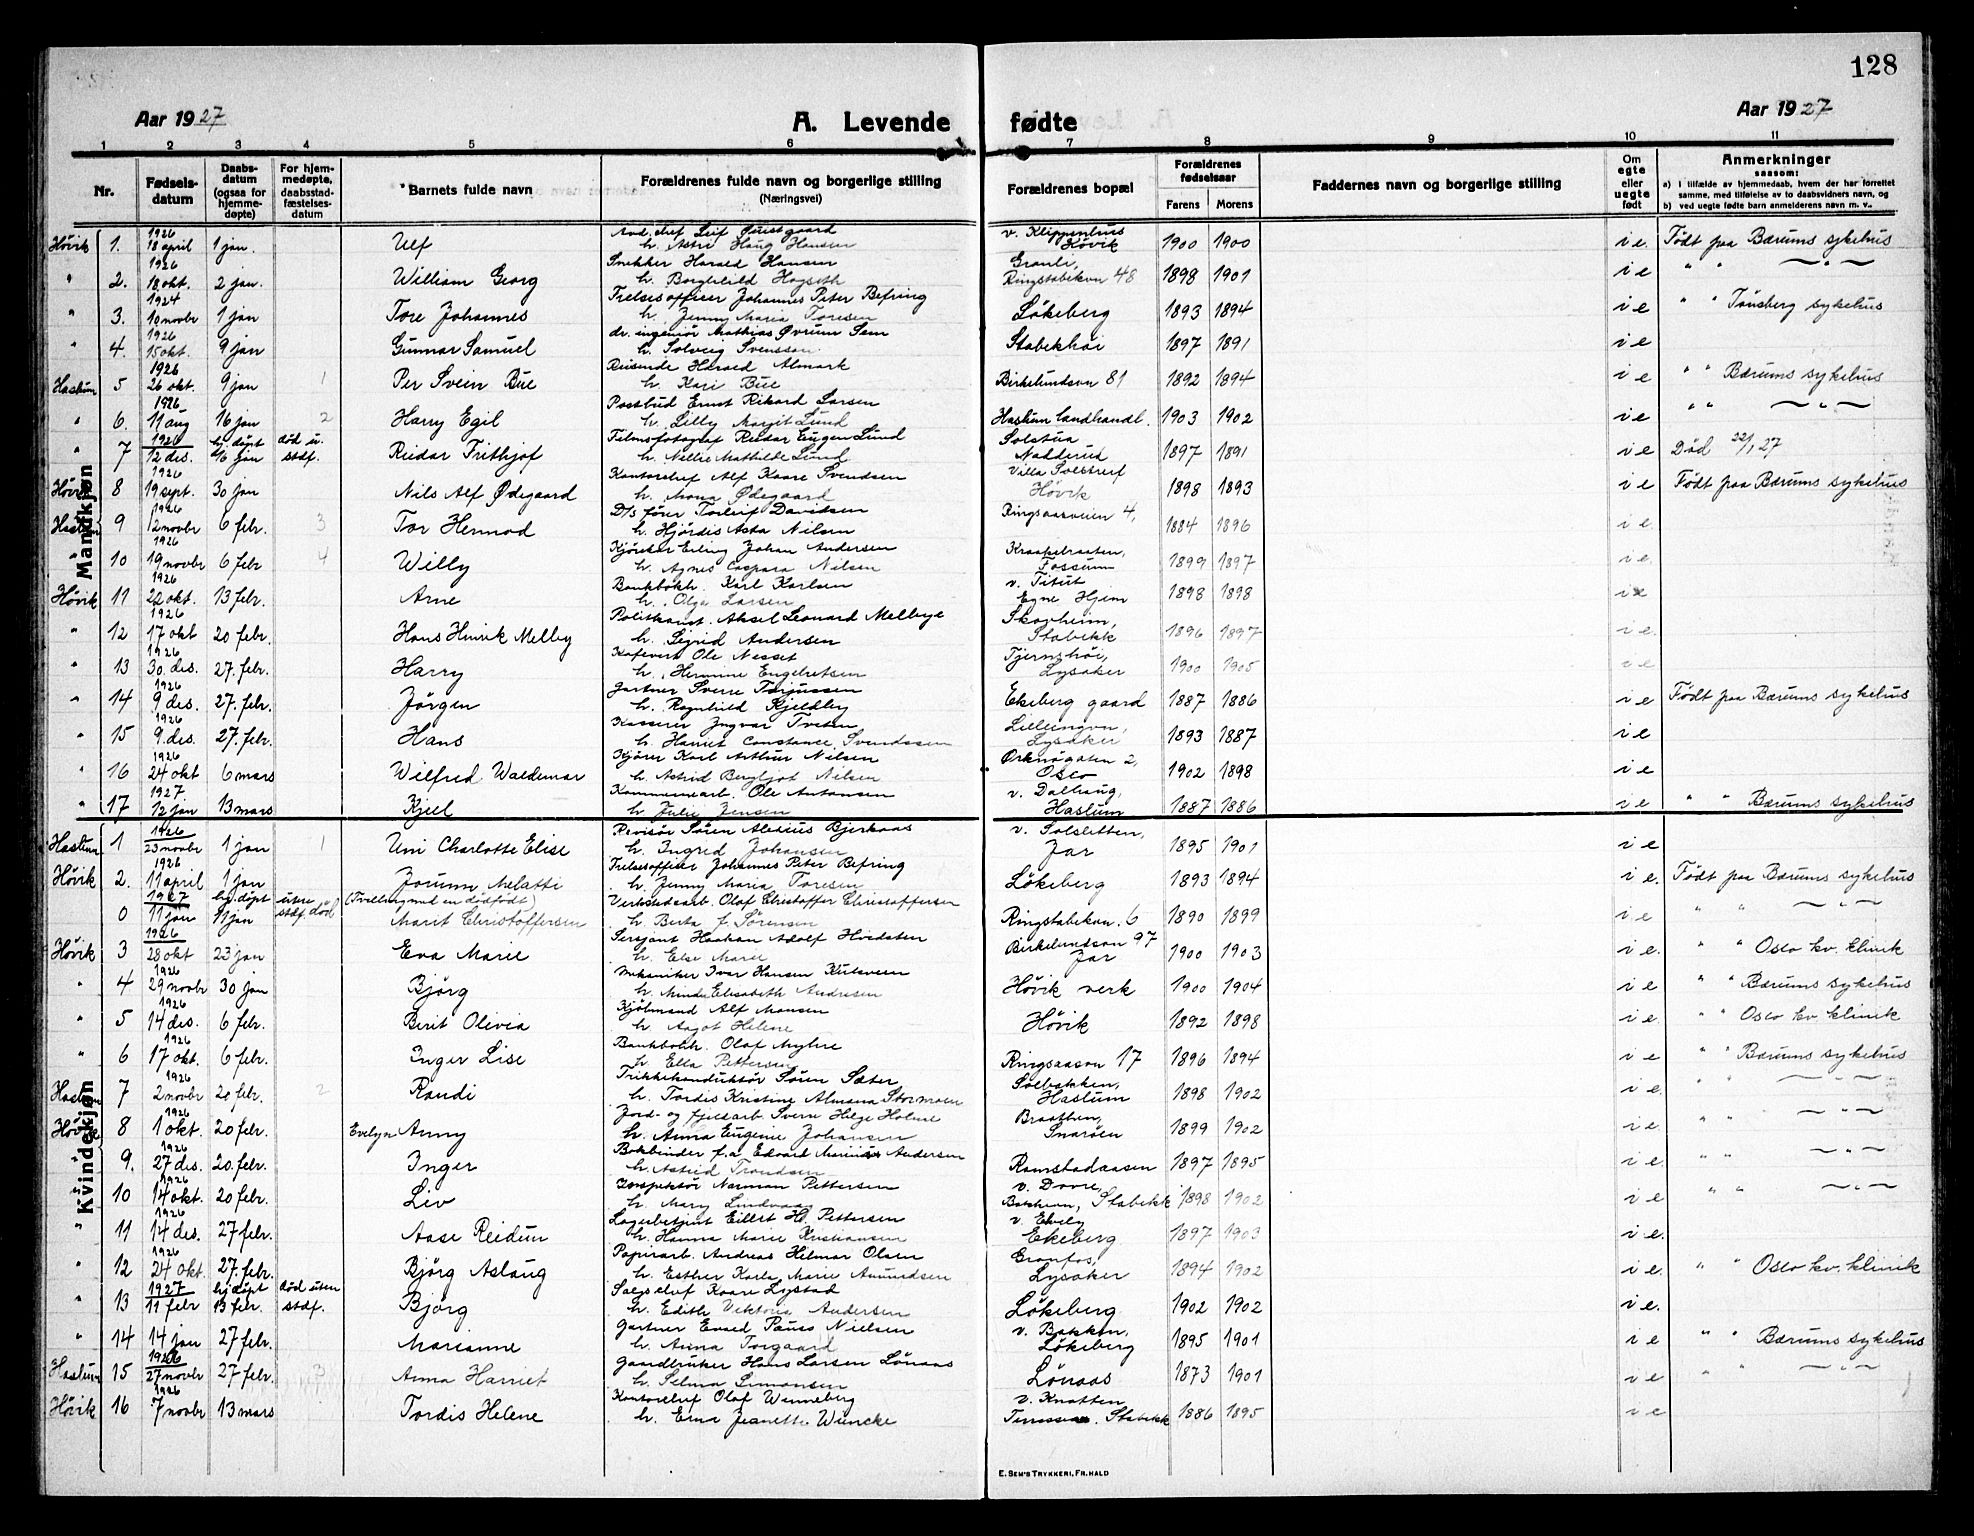 128
Aar 1927
A. Levende fødte
Aar 1927
1 2 3 4 5 6 7 8 9 10 11
Nr.
Fødselsdatum
Daabsdatum (ogsaa for hjemmedøpte)
For hjemmedøpte, daabsstadfæstelsesdatum
Barnets fulde navn
Forældrenes fulde navn og borgerlige stilling
(Næringsvei)
Forældrenes bopæl
Forældrenes fødselsaar
Farens Morens
Faddernes navn og borgerlige stilling
Om egte eller uegte født
Anmerkninger
saasom:
a) I tilfælde av hjemmedaab, hvem der har forrettet
samme, med tilføielse av to daabsvidners navn, og
b) ved uegte fødte barn anmelderens navn m. v.
Mandkjøn
Høvik 1. 1926 18 april 1 jan. Ulf h. Astri Haug Hansen v. Klippenhus Høvik 1900 1900 i e. Født paa Bærums sykehus
" 2. 1926 18 okt. 2 jan. William Georg Snekker Harald Hansen h. Borghild Høgseth Granli, Ringstabekvn 48 1898 1901 i e " "
" 3. 1924 10 novbr 1 jan Tore Johannes Frelsesofficer Johannes Peter Befring h. Jenny Maria Toresen Løkeberg 1893 1894 i e " " Tønsberg sykehus
" 4. 1926 15 okt. 9 jan Gunnar Samuel dr. ingeniør Mathias Øvrum Sem h. Solveig Svensson Stabekhøi 1897 1891 i e
Haslum 5 1926 26 okt. 9 jan 1 Per Svein Bue Reisende Harald Almark h. Kari Bue Birkelundsvn 81 1892 1894 i e " " Bærums sykehus
" 6. 1926 11 aug 16 jan 2 Harry Egil Postbud Ernst Rikard Larsen h. Lilly Margit Lund Haslum landhandl. 1903 1902 i e " "
" 7 1926 12 des. hj. døpt 16 jan død u. stdf. Reidar Frithjof Filmsfotograf Reidar Eugen Lund h. Nellie Mathilde Lund Solstua Nadderud 1897 1891 i e Død 22/1 27
Høvik 8 1926 19 sept. 30 jan Nils Alf Ødegaard Kontorchef Alf Kaare Svendsen h. Mona Ødegaard Villa Høvik 1898 1893 i e Født paa Bærums sykehus
Haslum 9 1926 12 novbr 6 febr. 3 Tor Hermod D/s fører Torleif Davidsen h. Hjørdis Asta Nilsen Ringsaasveien 4, 1884 1896 i e
" 10 1926 19 novbr 6 febr 4 Willy Kjøreker Erling Johan Andersen h. Agnes Caspara Nilsen Fossum 1899 1897 i e
Høvik 11 1926 22 okt. 13 febr. Arne Bankbokh. Karl Karlsen h. Olga Larsen v. Titut Egne Hjem 1898 1898 i e
" 12 1926 17 okt 20 febr. Hans Henrik Melby Politikonst. Aksel Leonard Melbye h. Sigrid Andersen Skogheim, Stabekk 1896 1897 i e.
" 13 1926 30 des. 27. febr. Harry Kafevert Ole Nesset h. Hermine Engelretsen Tjernshøi, Lysaker 1900 1905 i e
" 14 1926 9 des. 27. febr. Jørgen Gartner Sverre Torjussen h. Ragnhild Kjeldby Ekeberg gaard 1887 1886 i e Født paa Bærums sykehus
" 15 1926 9. des. 27. febr. Hans Kasserer Ingvar Tveten h. Harriet Constance Svendssen Lysaker 1893 1887 i e
" 16 1926 24 okt 6 mars Wilfred Waldemar Kjører Karl Arthur Nilsen h. Astrid Bergljot Nilsen Orknøgaten 2, Oslo 1902 1898 i e
" 17 1927 12 jan 13 mars Kjell Kommunearb. Ole Antonsen h. Julie Jensen v. Dalhaug, Haslum 1887 1886 i e " " Bærums sykehus
Kvindekjøn
Haslum 1 1926 23 novbr 1 jan 1 Uni Charlotte Elise Revisør Søren Alexius Bjerkaas h. Ingrid Johansen v. Solsletten, Jar 1895 1901 i e
Høvik 2. 1926 11 april 1 jan Jorunn Melatti Frelsesofficer Johannes Peter Befring h. Jenny Maria Toresen Løkeberg 1893 1894 i e. Født paa Bærums sykehus
0 1927 11 jan hj. døpt 11 jan uten stdf. død (Tvilling med en dødfødt) Marit Christoffersen Verkstedsarb. Olaf Christoffer Christoffersen h. Berta J. Sørensen Ringstabekvn. 6 1890 1899 i e " "
Høvik 3 1926 28 okt 23 jan Eva Marie Sersjant Haakon Adolf Hvidsten h. Else Marie Birkelundsvn 97 Jar 1900 1903 i e. " " Oslo kv. klinik
" 4 1926 29 novbr 30 jan Bjørg Mekaniker Ivar Hansen Kulsveen h. Minda Elisabeth Andresen Høvik verk 1900 1904 i e " " Bærums sykehus
" 5 1926 14 des. 6 febr. Berit Olivia Kjøbmand Alf Monsen h. Aagot Helene Høvik 1892 1898 i e. " " Oslo kv. klinik
" 6 1926 17 okt. 6 febr. Inger Lise Bankbokh. Olaf Myhre h. Ella Pettersen Ringsaasvn 17 1896 1894 i e " " Bærums sykehus
Haslum 7 1926 2 novbr 20 febr. 2 Randi Trikkekonduktør Søren Sæter h. Tordis Kristine Almana Stormoen Solbakken, Haslum 1898 1902 i e. " "
Høvik 8 1926 1 okt. 20 febr. Evelyn Anny Jord- og fjellarb. Sverre Helge Holme h. Anna Eugenie Johansen Braathen, Snarøen 1899 1902 i e. " "
9. 1926 27 des. 20. febr. Inger Bokbinder f.a Edvard Marinius Andersen h. Astrid Trondsen Ramstadaasen 1897 1895 i e. " "
" 10 1926 14 okt. 20 febr. Liv Inspektør Norman Pettersen h. Mary v. Dovre, Stabekk 1898 1902 i e " "
" 11 1926 14 des. 27 febr. Aase Reidun Lagerbetjent Eilert H. Pettersen h. Hanna Marie Kristiansen v. Ekely Ekeberg 1897 1903 i e.
" 12 1926 24 okt. 27. febr. Bjørg Aslaug Papirarb. Andreas Hilmar Olsen h. Esther Karla Marie Amundsen Granfos, Lysaker 1894 1902 i e. " " Oslo kv. klinik
" 13 1927 11 febr hj. døpt 13 febr. død uten stdf. Bjørg Salgschef Kaare Lystad h. Edith Viktoria Andersen Løkeberg 1902 1902 i e.
" 14 14 jan 27 febr. Marianne Gartner Erved Pauss Nielsen h. Anna Torgaard v. Bakken, Løkeberg 1895 1901 i e " " Bærums sykehus
Haslum 15 1926 27 novbr 27 febr. 3 Anna Harriet Gaardbruker Hans Larsen Lønaas h. Selma Simonsen Lønaas 1873 1901 i e " "
Høvik 16 1926 7 novbr 13 mars Tordis Helene Kontorchef Olaf Wenneberg h. Erna Jeanette Wüncke v. Knatten Stabekk 1886 1895 i e
E. SEM'S TRYKKERI, FR.HALD